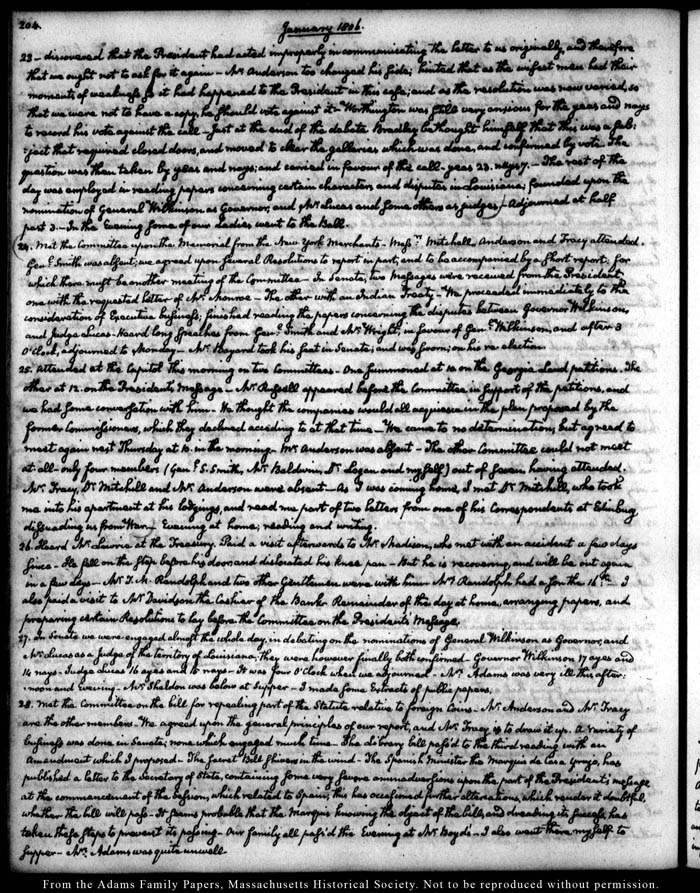 204.
January 1806.
23 – discovered that the President had acted improperly in communicating the letter to us originally, and therefore
that we ought not to ask for it again – Mr Anderson too changed his side; hinted that as the wisest men had their
moments of weakness so it had happened to the President in this case; and as the resolution was now varied, so
that we were not to have a copy, he should vote against it – Worthington was still very anxious for the yeas and nays
to record his vote against the call – Just at the end of the debate Bradley bethought himself that this was a sub:
:ject that required closed doors, and moved to clear the galleries which was done, and confirmed by vote. The
question was then taken by yeas and nays; and carried in favour of the call – yeas 23. nays 7. – The rest of the
day was employed in reading papers concerning certain characters and disputes in Louisiana; founded upon the
nomination of General Wilkinson as Governor, and Mr Lucas and some others as judges) – Adjourned at half
past 3. – In the Evening some of our Ladies went to the Ball.
24. Met the Committee upon the Memorial from the New York Merchants – Messrs. Mitchell Anderson and Tracy attended.
Genl. Smith was absent; we agreed upon several Resolutions to report in part, and to be accompanied by a short report; for
which there must be another meeting of the Committee – In Senate, two Messages were received from the President,
one with the requested letter of Mr. Monroe – The other with an Indian Treaty – We proceeded immediately to the
consideration of Executive business; finished reading the papers concerning the disputes between Governor Wilkinson,
and Judge Lucas. Heard long speeches from Genl. Smith and Mr. Wright, in favour of Genl. Wilkinson, and after 3
O'Clock, adjourned to Monday – Mr. Bayard took his seat in Senate; and was sworn; on his re-election
25. Attended at the Capitol this morning on two Committees – One summoned at 10 on the Georgia Land petitions. The
other at 12. on the President's Message – Mr. Russell appeared before the Committee in support of the petitions, and
we had some conversation with him – He thought the companies would all acquiesce in the plan proposed by the
former Commissioners, which they declined acceding to at that time – We came to no determination; but agreed to
meet again next Thursday at 10. in the morning – Mr. Anderson was absent – The other Committee could not meet
at all – only four members (Genl. S. Smith, Mr. Baldwin, Dr. Logan and myself) out of seven having attended.
Mr. Tracy, Dr. Mitchill and Mr. Anderson were absent – As I was coming home, I met Dr. Mitchill, who took
me into his apartment at his lodgings, and read me part of two letters from one of his Correspondents at Edinburg
dissuading us from War – Evening at home; reading and writing.
26. Heard Mr. Laurie at the Treasury. Paid a visit afterwards to Mr. Madison, who met with an accident a few days
since – He fell on the step before his door and dislocated his knee pan – But he is recovering, and will be out again
in a few days – Mr. T. M. Randolph and two other Gentlemen were with him. Mrs. Randolph had a son the 16th. – I
also paid a visit to Mr. Davidson the Cashier of the Bank. Remainder of the day at home, arranging papers, and
preparing certain Resolutions to lay before the Committee on the President's Message.
27. In Senate we were engaged almost the whole day, in debating on the nominations of General Wilkinson as Governor, and
Mr. Lucas as a Judge of the territory of Louisiana; they were however finally both confirmed – Governor Wilkinson 17 ayes and
14 nays – Judge Lucas 16 ayes and 15 nays – It was four O'Clock when we adjourned – Mrs. Adams was very ill this after:
:noon and Evening – Mr. Sheldon was below at supper – I made some Extracts of public papers.
28. Met the Committee on the bill for repealing part of the Statute relative to foreign Coins – Mr. Anderson and Mr. Tracy
are the other members – We agreed upon the general principles of our report, and Mr. Tracy is to draw it up. A variety of
business was done in Senate; none which engaged much time – The library bill pass'd to the third reading with an
Amendment which I proposed – The secret Bill shivers in the wind – The Spanish Minister the Marquis de Casa Yrujo, has
published a letter to the Secretary of State, containing some very severe animadversions upon the part of the President's message
at the commencement of the session, which related to Spain; this has occasioned further altercations, which render it doubtful
whether the bill will pass – It seems probable that the Marquis knowing the object of the bill, and dreading its success, has
taken these steps to prevent its passing – Our family all pass'd the Evening at Mr. Boyd's – I also went there myself to
supper – Mrs. Adams was quite unwell –
From the Adams Family Papers, Massachusetts Historical Society. Not to be reproduced without permission.